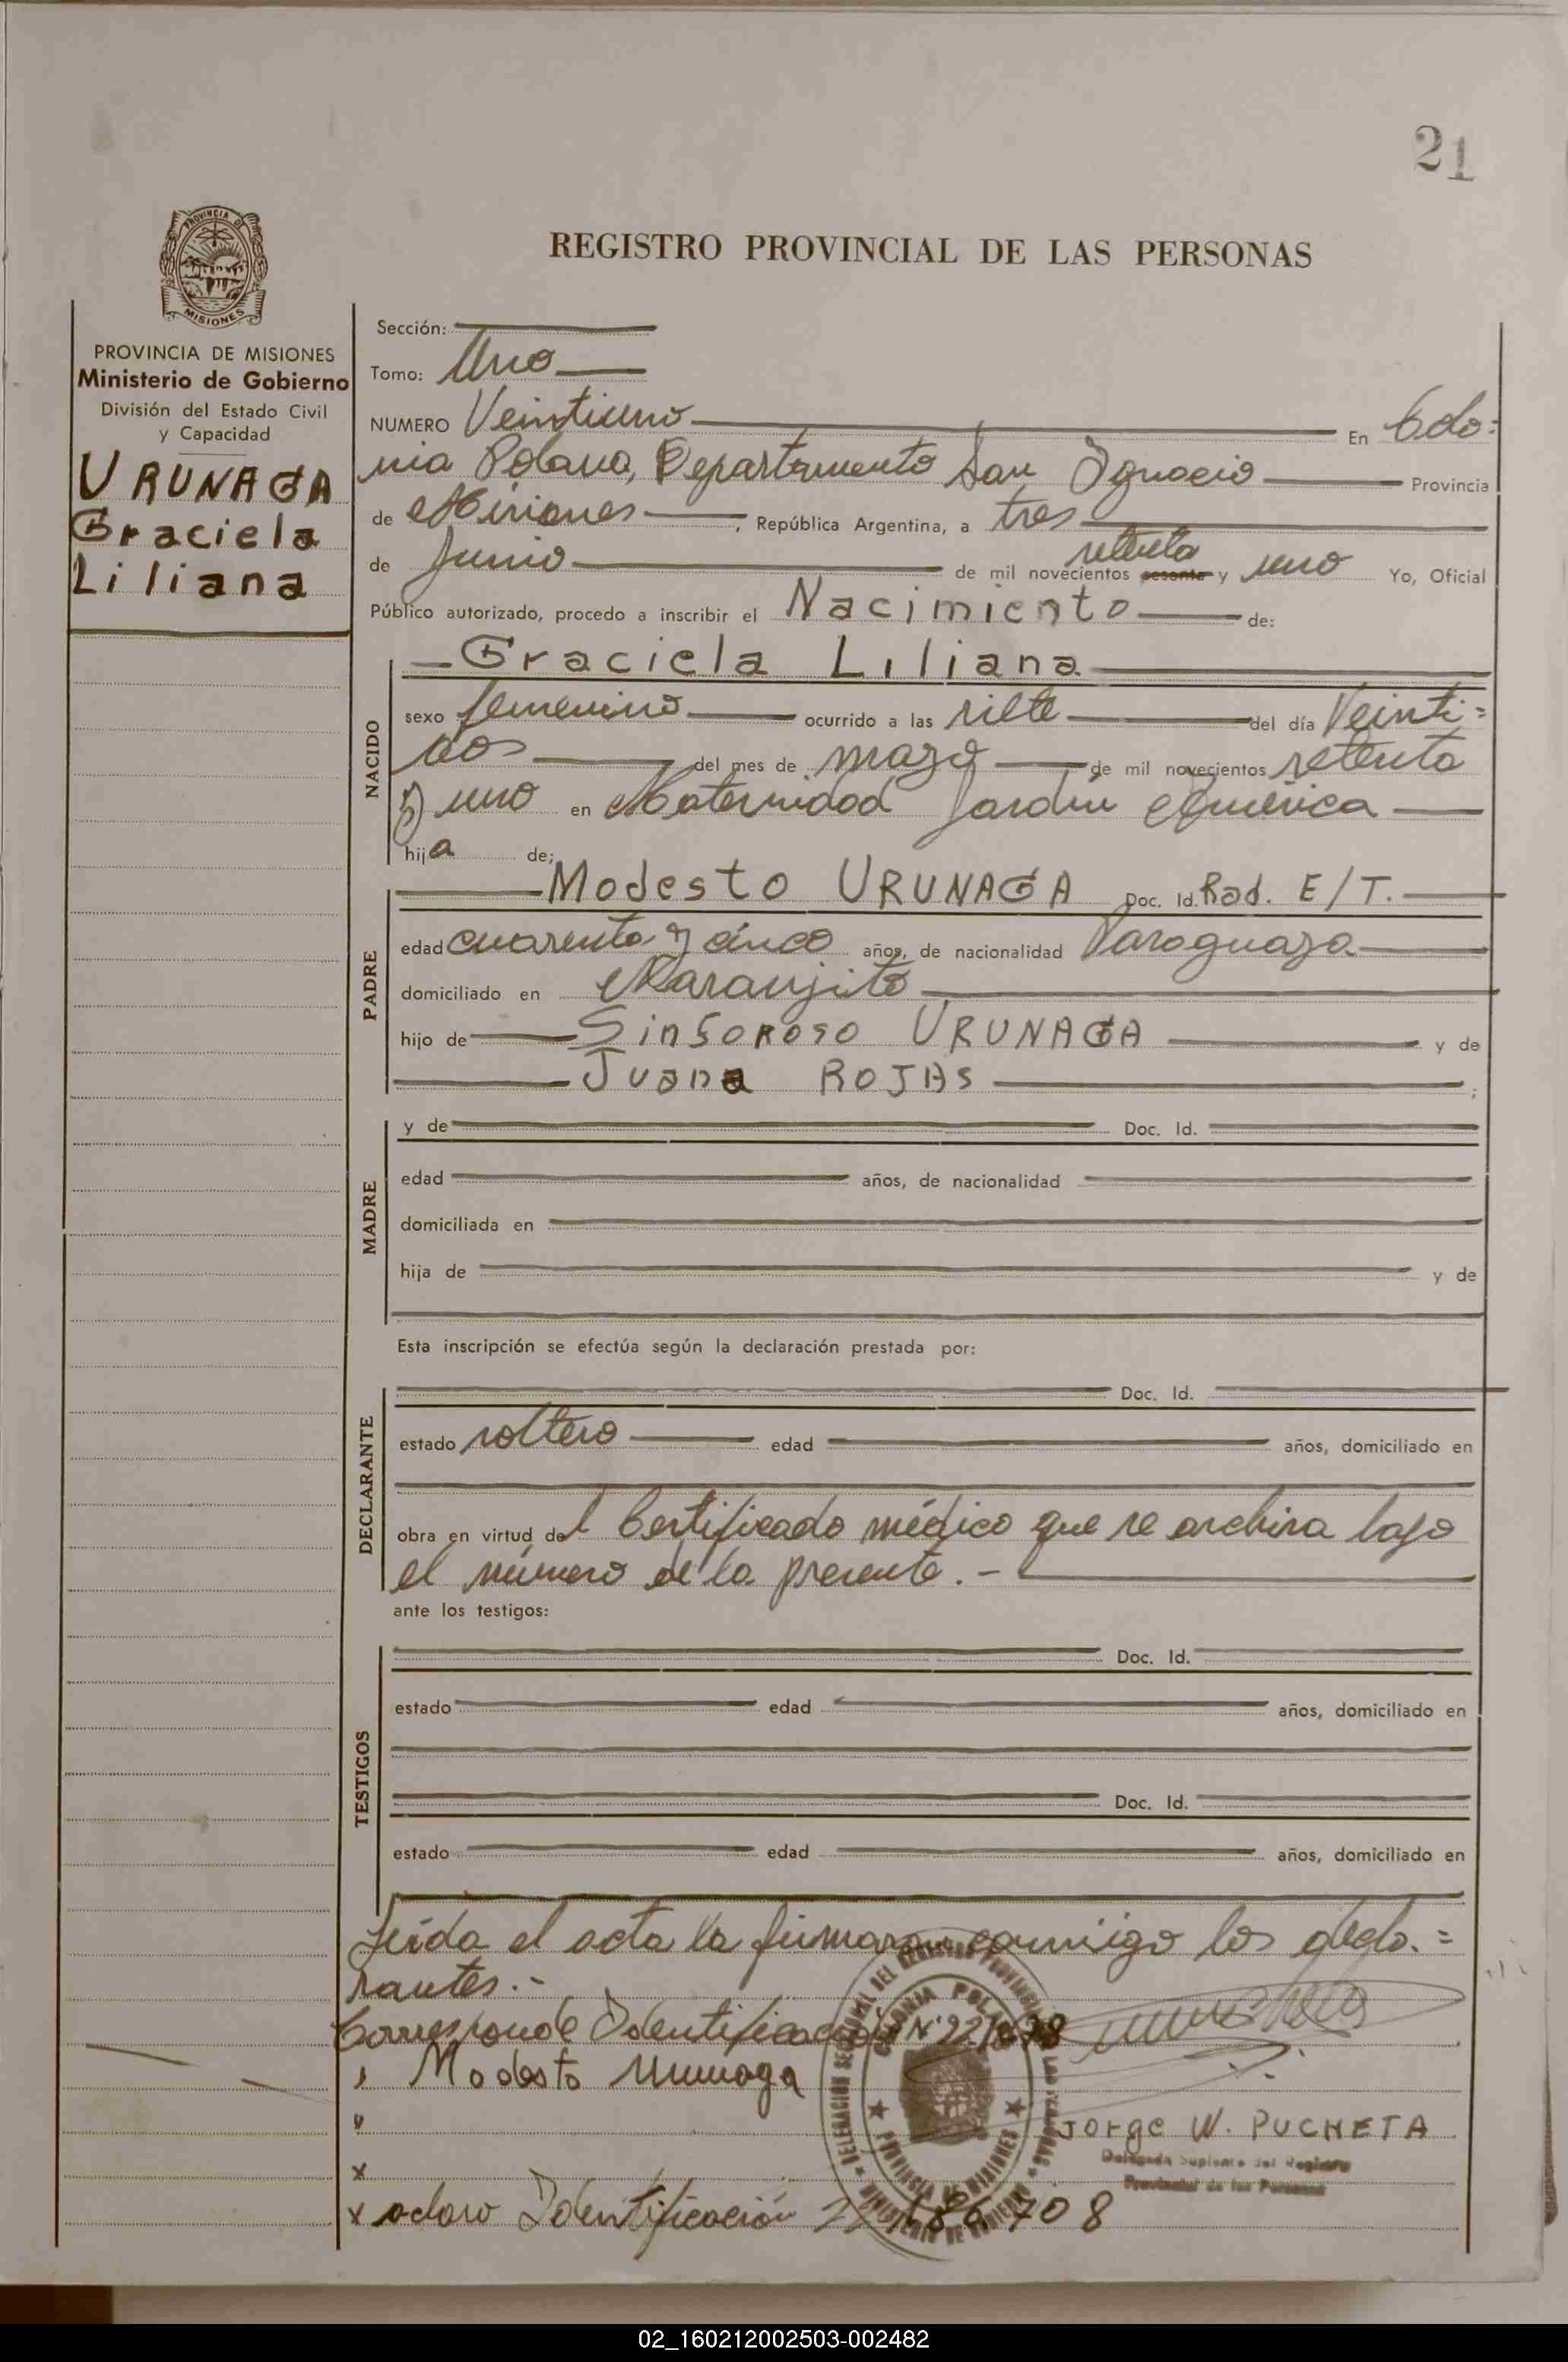 21
PROVINCIA DE
MISIONES
REGISTRO PROVINCIAL DE LAS PERSONAS
PROVINCIA DE MISIONES
Ministerio de Gobierno
División del Estado Civil
y Capacidad
URUNAGA
Graciela
Liliana
Sección:
Tomo: Uno
NUMERO Veintiuno En Colo=
nia Polana, Departamento San Ignacio Provincia
de Misiones, República Argentina, a tres
de Junio de mil novecientos sesenta setenta y uno Yo, Oficial
Público autorizado, procedo a inscribir el Nacimiento de:
NACIDO
Graciela Liliana
sexo femenino ocurrido a las siete del día Veinti=
dos del mes de mayo de mil novecientos setenta
y uno en Maternidad Jardín América
hija de;
PADRE
Modesto URUNAGA Doc. Id. Rad. E/T.
edad cuarenta y cinco años, de nacionalidad Paraguaya
domiciliado en Naranjito
hijo de Sinforoso URUNAGA y de
Juana ROJAS ;
MADRE
y de Doc. Id.
edad años, de nacionalidad
domiciliada en
hija de y de
Esta inscripción se efectúa según la declaración prestada por:
DECLARANTE
Doc. Id.
estado soltero edad años, domiciliado en
obra en virtud del Certificado médico que se archiva bajo
el número de la presente.-
ante los testigos:
TESTIGOS
Doc. Id.
estado edad años, domiciliado en
Doc. Id.
estado edad años, domiciliado en
Leída el acta la firmaron conmigo los decla.=
rantes.-
Corresponde Identificación Nº 22.
Modesto Urunaga
Jorge W. PUCHETA
Delegado Suplente del Registro
Provincial de las Personas
x
x aclaro Identificación 708
COLONIA POLANA
PROVINCIA DE MISIONES
02_160212002503-002482